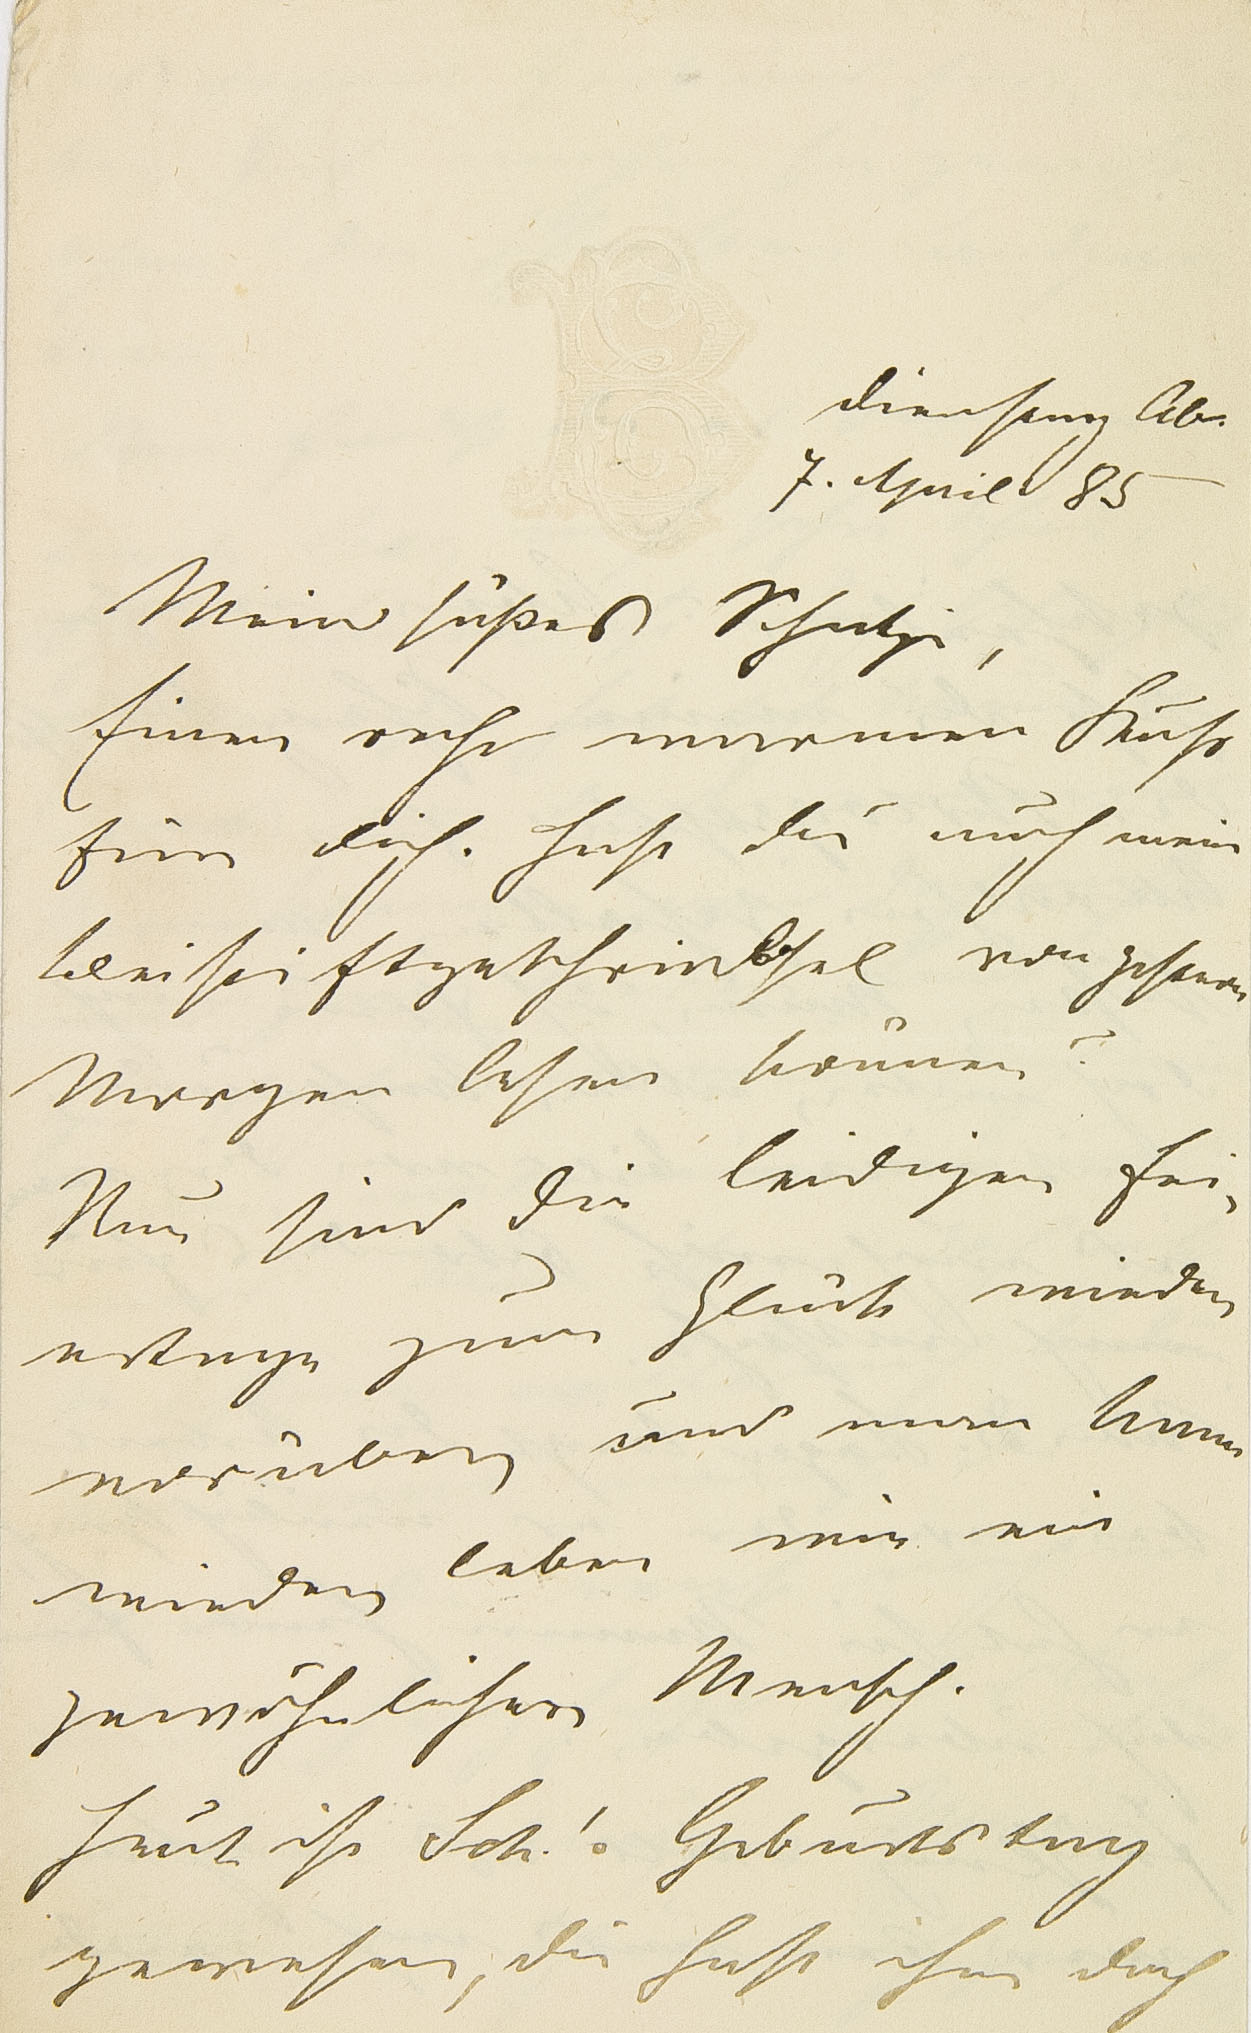 Dienstag Ab.
7. April 85
Mein süßes Schatzi,
Einen recht warmen Kuß
für dich. Hast du auch mein
Bleistiftgeschreibsel von gestern
Morgen lesen können?
Nun sind die leidigen Fei-
ertage zum Glück wieder
vorüber und man kann
wieder leben wie ein
gewöhnlicher Mensch.
Heut ist Sch.'s Geburtstag
gewesen, du hast ihm doch